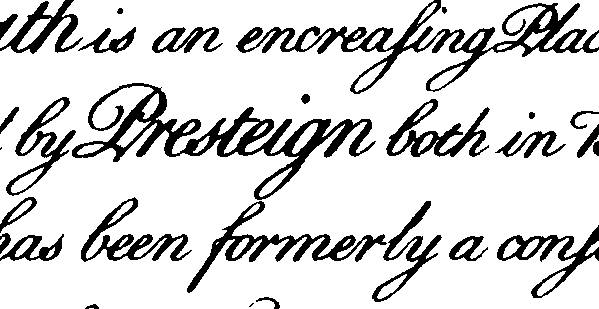 is an encreaſing
by Presteign both in
has been formerly a